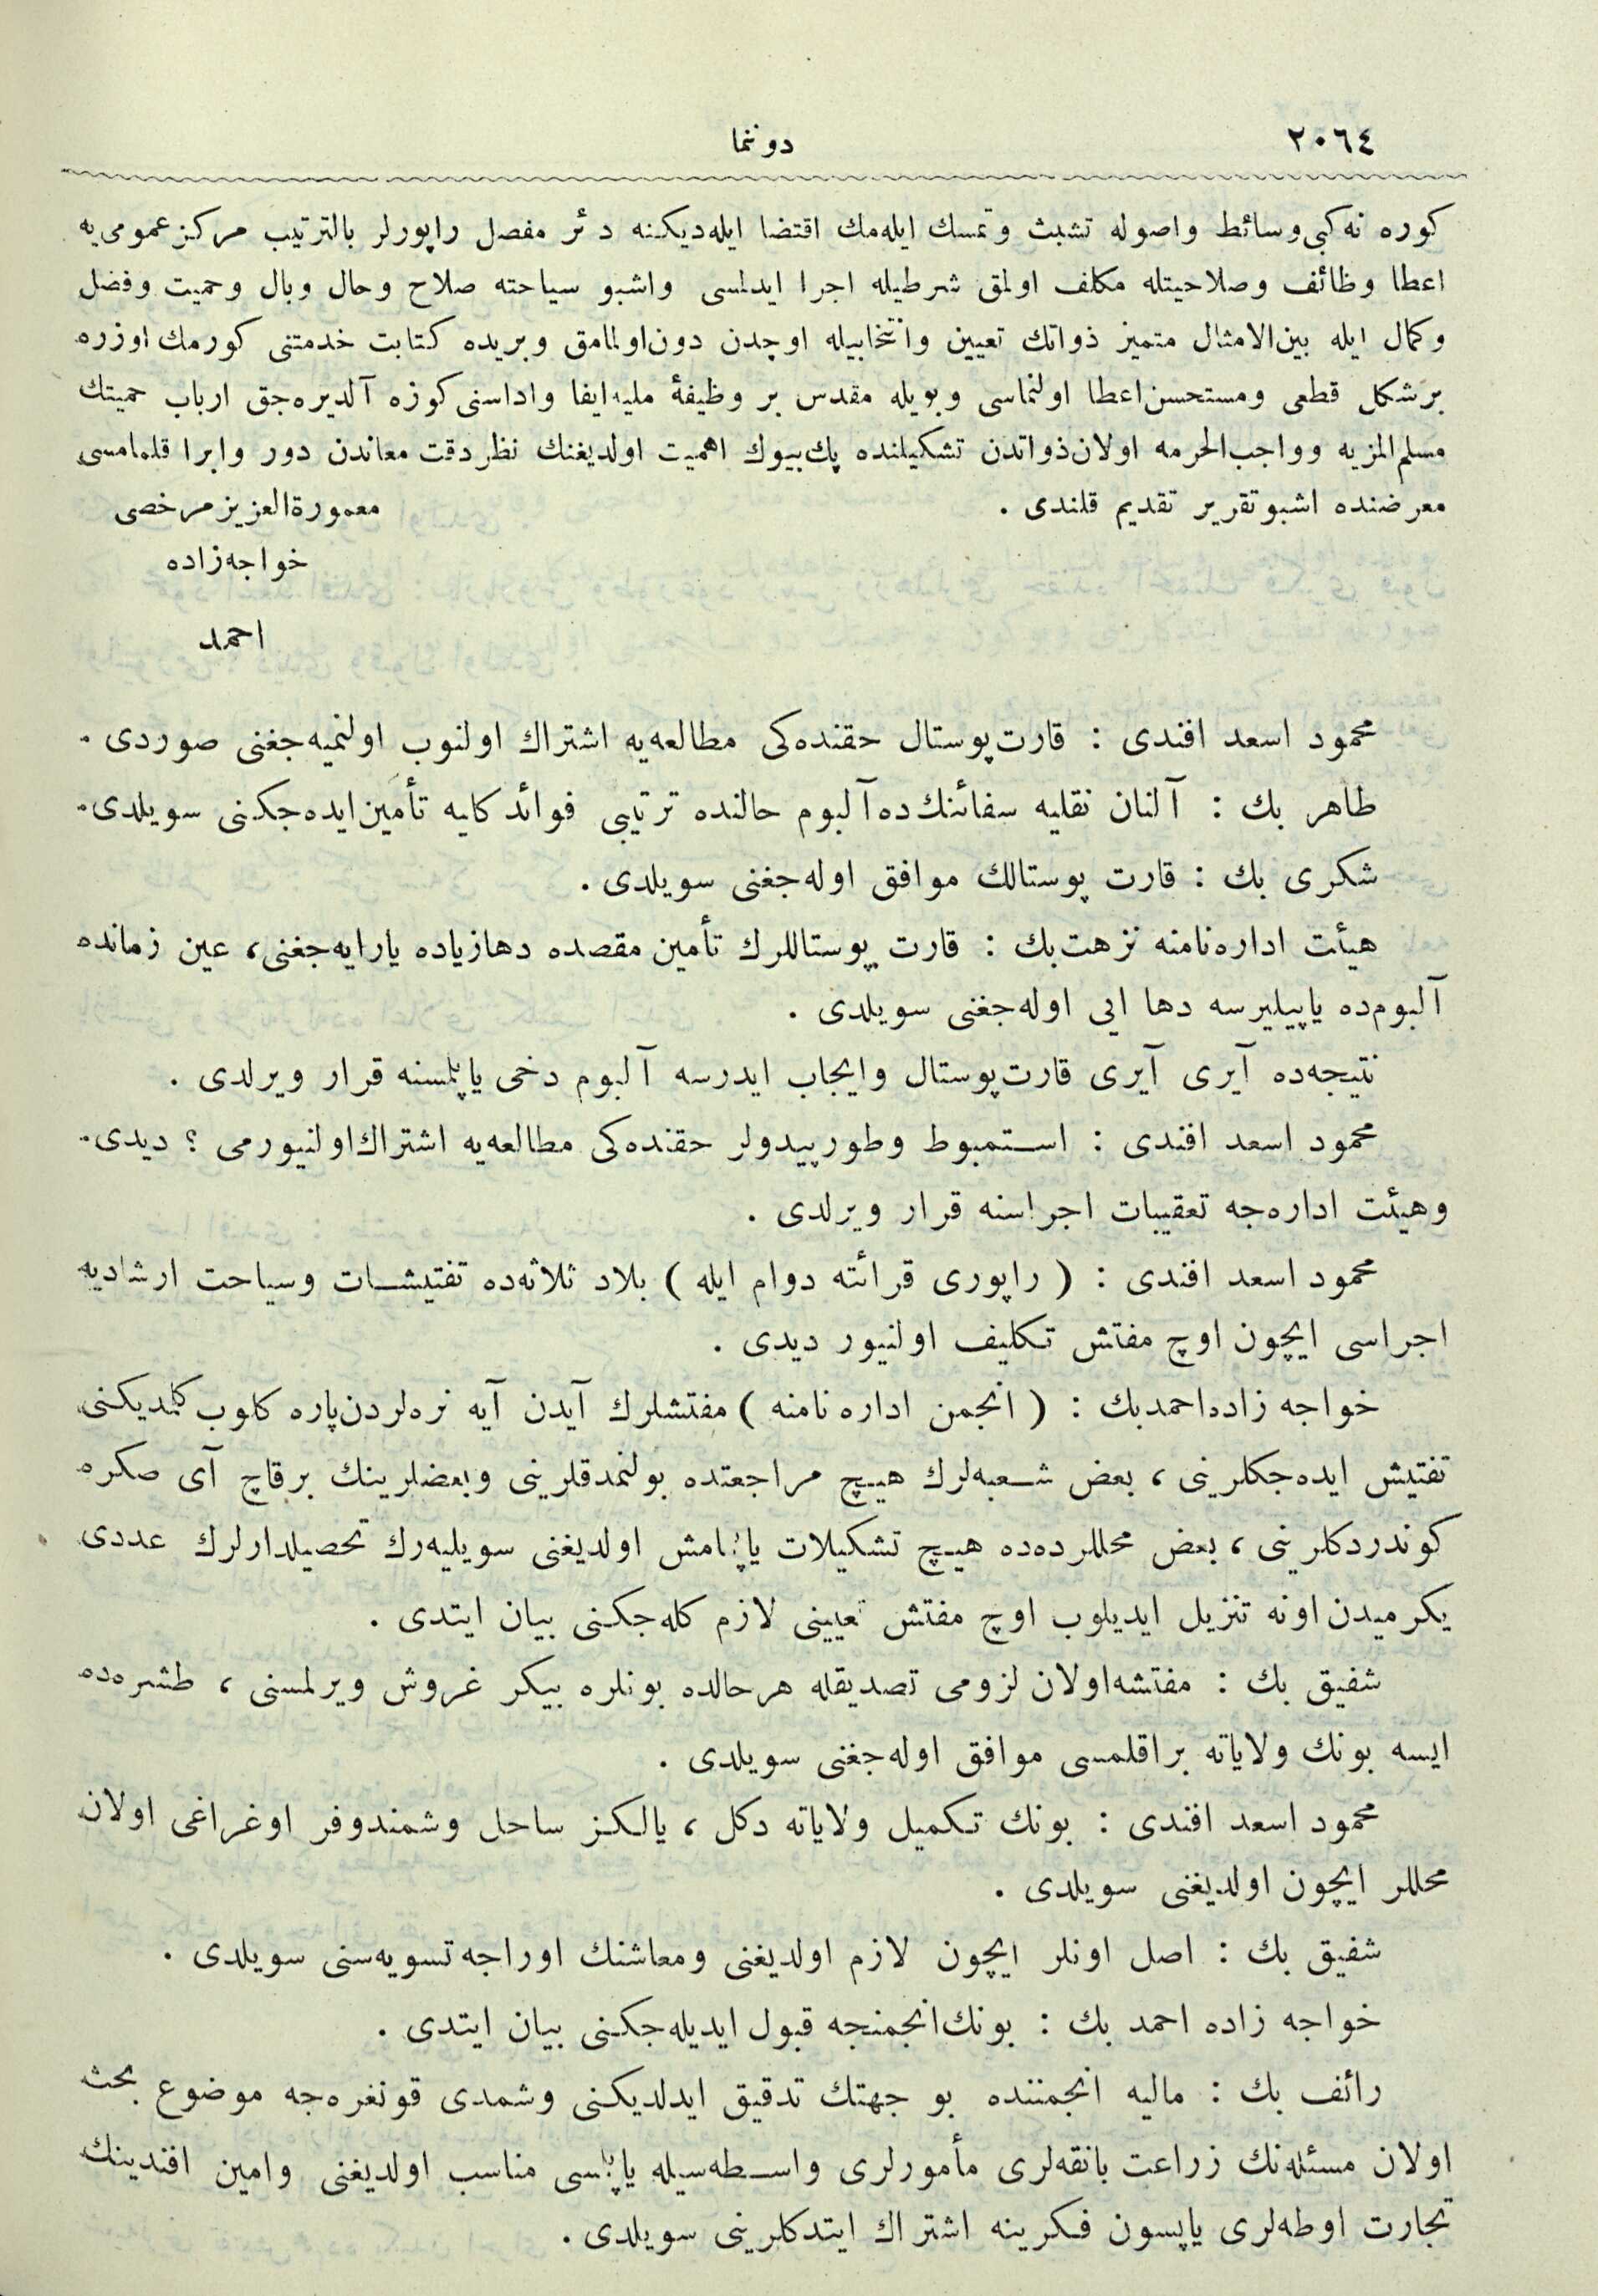 ٢٠٦٤
دوننما
كوره نه كبی وسائط واصوله تشبث وتمسك ايله‌مك اقتضا ايله‌ديكنه دئر مفصل راپورلر بالترتيب مركز عمومی‌يه
اعطا وظائف وصلاحيتله مكلف اولمق شرطيله اجرا ايدلسی واشبو سياحته صلاح وحال وبال وحميت وفضل
وكمال ايله بين‌الامثال متميز ذواتك تعيين وانتخابيله اوچدن دون‌اولمامق وبريده كتابت خدمتنی كورمك اوزره
برشكل قطعی ومستحسن‌اعطا اولنماسی وبويله مقدس بر وظيفهٔ مليه‌ايفا واداسنی كوزه آلديره‌جق ارباب حميتك
مسلم‌المزيه وواجب‌الحرمه اولان‌ذواتدن تشكيلنده پك‌بيوك اهميت اولديغنك نظردقت معاندن دور وابرا قلمامسی
معرضنده اشبوتقرير تقديم قلندی .
معمورةالعزيز مرخصی
خواجه‌زاده
احمد
محمود اسعد افندی : قارت‌پوستال حقنده‌كی مطالعه‌يه اشتراك اولنوب اولنميه‌جغنی صوردی .
طاهر بك : آلنان نقليه سفائنك ده‌آلبوم حالنده ترتيبی فوائد كليه تأمين‌ايده‌جكنی سويلدی.
شكری بك : قارت پوستالك موافق اوله‌جغنی سويلدی .
هيئت اداره‌نامنه نزهت‌بك : قارت پوستاللرك تأمين مقصده دهازياده يارايه‌جغنی، عين زمانده
آلبوم‌ده ياپيليرسه دها ايی اوله‌جغنی سويلدی .
نتيجه‌ده آيری آيری قارت‌پوستال وايجاب ايدرسه آلبوم دخی ياپلمسنه قرار ويرلدی .
محمود اسعد افندی : استمبوط وطورپيدولر حقنده‌كی مطالعه‌يه اشتراك‌اولنيورمی ؟ ديدی.
وهيئت اداره‌جه تعقيبات اجراسنه قرار ويرلدی .
محمود اسعد افندی : ( راپوری قرائته دوام ايله ) بلاد ثلاثه‌ده تفتيشات وسياحت ارشاديه
اجراسی ايچون اوچ مفتش تكليف اولنيور ديدی .
خواجه زاده‌احمدبك : ( انجمن اداره نامنه ) مفتشلرك آيدن آيه نره‌لردن‌پاره كلوب كلمديكنی
تفتيش ايده‌جكلرينی ، بعض شعبه‌لرك هيچ مراجعتده بولنمدقلرينی وبعضلرينك برقاچ آی صكره
كوندردكلرينی ، بعض محللرده‌ده هيچ تشكيلات ياپلمامش اولديغنی سويليه‌رك تحصيلدارلرك عددی
يكرميدن‌اونه تنزيل ايديلوب اوچ مفتش تعيينی لازم كله‌جكنی بيان ايتدی .
شفيق بك : مفتشه‌اولان لزومی تصديقله هرحالده بونلره بيكر غروش ويرلمسنی ، طشره‌ده
ايسه بونك ولاياته براقلمسی موافق اوله‌جغنی سويلدی .
محمود اسعد افندی : بونك تكميل ولاياته دكل ، يالكز ساحل وشمندوفر اوغراغی اولان
محللر ايچون اولديغنی سويلدی .
شفيق بك : اصل اونلر ايچون لازم اولديغنی ومعاشنك اوراجه‌تسويه‌سنی سويلدی .
خواجه زاده احمد بك : بونك‌انجمنجه قبول ايديله‌جكنی بيان ايتدی .
رائف بك : ماليه انجمننده بو جهتك تدقيق ايدلديكنی وشمدی قونغره‌جه موضوع بحث
اولان مسئله‌نك زراعت بانقه‌لری مأمورلری واسطه‌سيله ياپلمسی مناسب اولديغنی وامين افندينك
تجارت اوطه‌لری ياپسون فكرينه اشتراك ايتدكلرينی سويلدی .